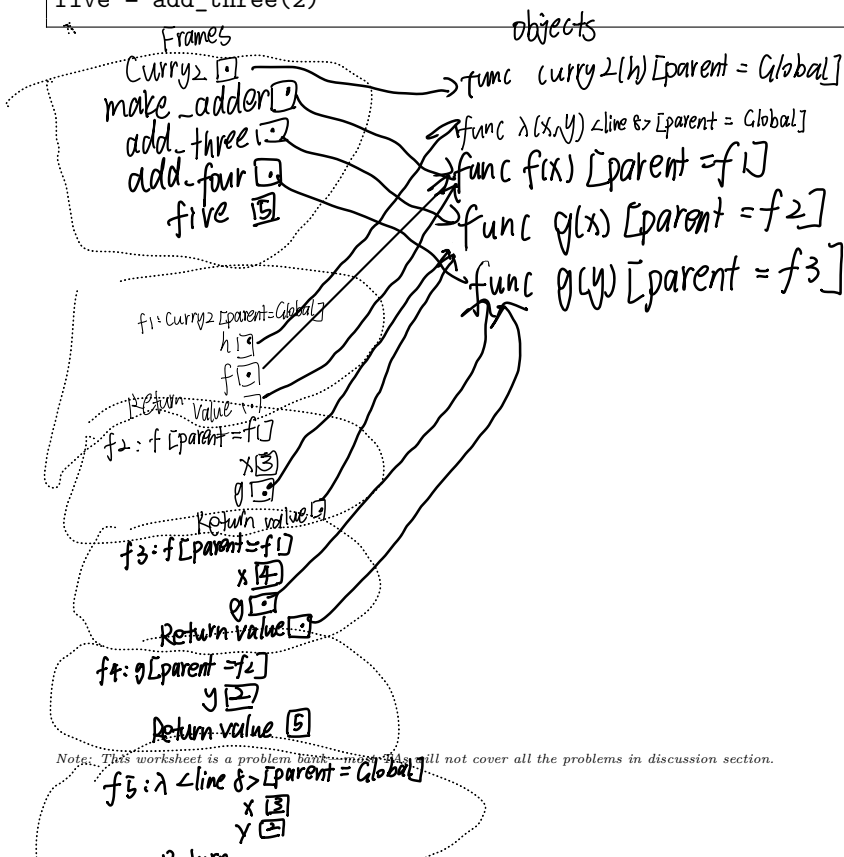 five = add_three(2)
Frames
objects
Curry2
func curry2(h) [parent = Global]
make_adder
func λ(x,y) <line 8> [parent = Global]
add_three
func f(x) [parent =f1]
add_four
func g(x) [parent =f2]
five 5
func g(y) [parent = f3]
f1: Curry2 [parent=Global]
h
f
Return value
f2: f [parent=f1]
x 3
g
Return value
f3: f [parent=f1]
x 4
g
Return value
f4: g [parent =f2]
y 2
Return value 5
Note: This worksheet is a problem bank—most TAs will not cover all the problems in discussion section.
f5: λ <line 8> [parent = Global]
x 3
y 2
Return